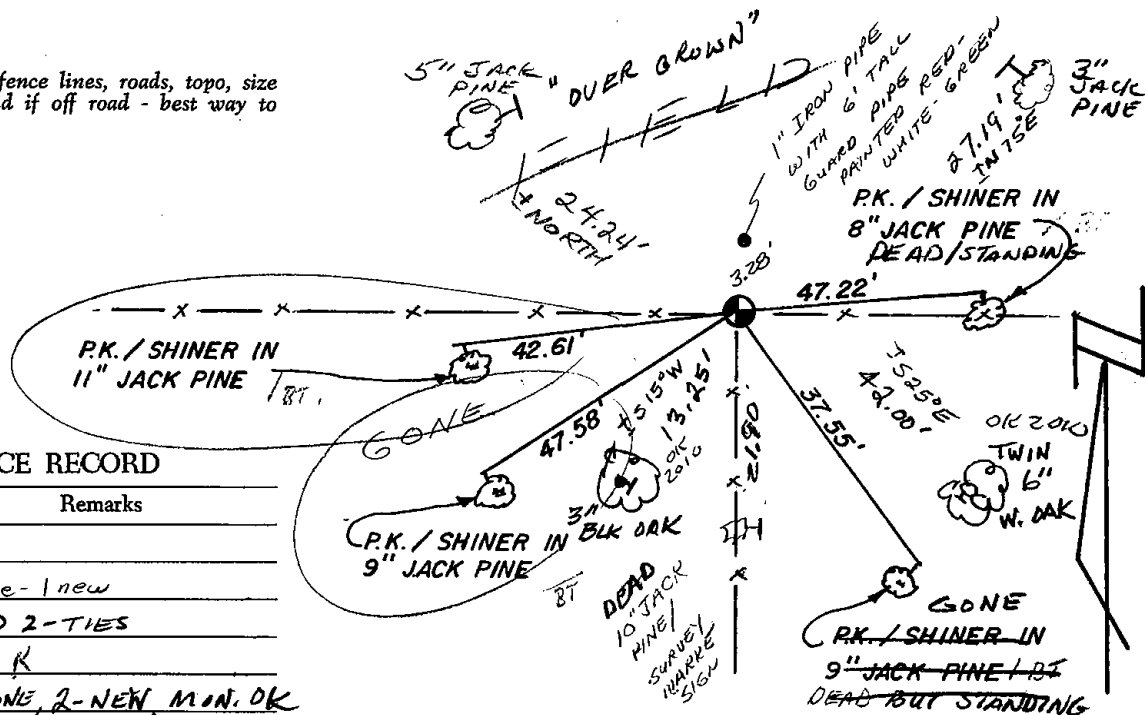 fence lines, roads, topo, size
d if off road - best way to
5" JACK
PINE
"OVER GROWN"
1" IRON PIPE
WITH 6' TALL
GUARD PIPE
PAINTED RED-
WHITE-GREEN
3"
JACK
PINE
27.19'
N75E
24.24'
± NORTH
P.K. / SHINER IN
8" JACK PINE
DEAD/STANDING
3.28'
47.22'
42.61'
P.K. / SHINER IN
11" JACK PINE
BT.
GONE
47.58'
± S15°W
13.25'
OK
2010
21.90
37.55'
S25°E
42.00'
OK 2010
TWIN
6"
W. OAK
3"
BLK OAK
P.K. / SHINER IN
9" JACK PINE
BT
DEAD
10" JACK
PINE/
SURVEY
SIGN
GONE
P.K. / SHINER IN
9" JACK PINE / BT
DEAD BUT STANDING
CE RECORD
Remarks
e - 1 new
2-TIES
K
NE, 2-NEW MON. OK